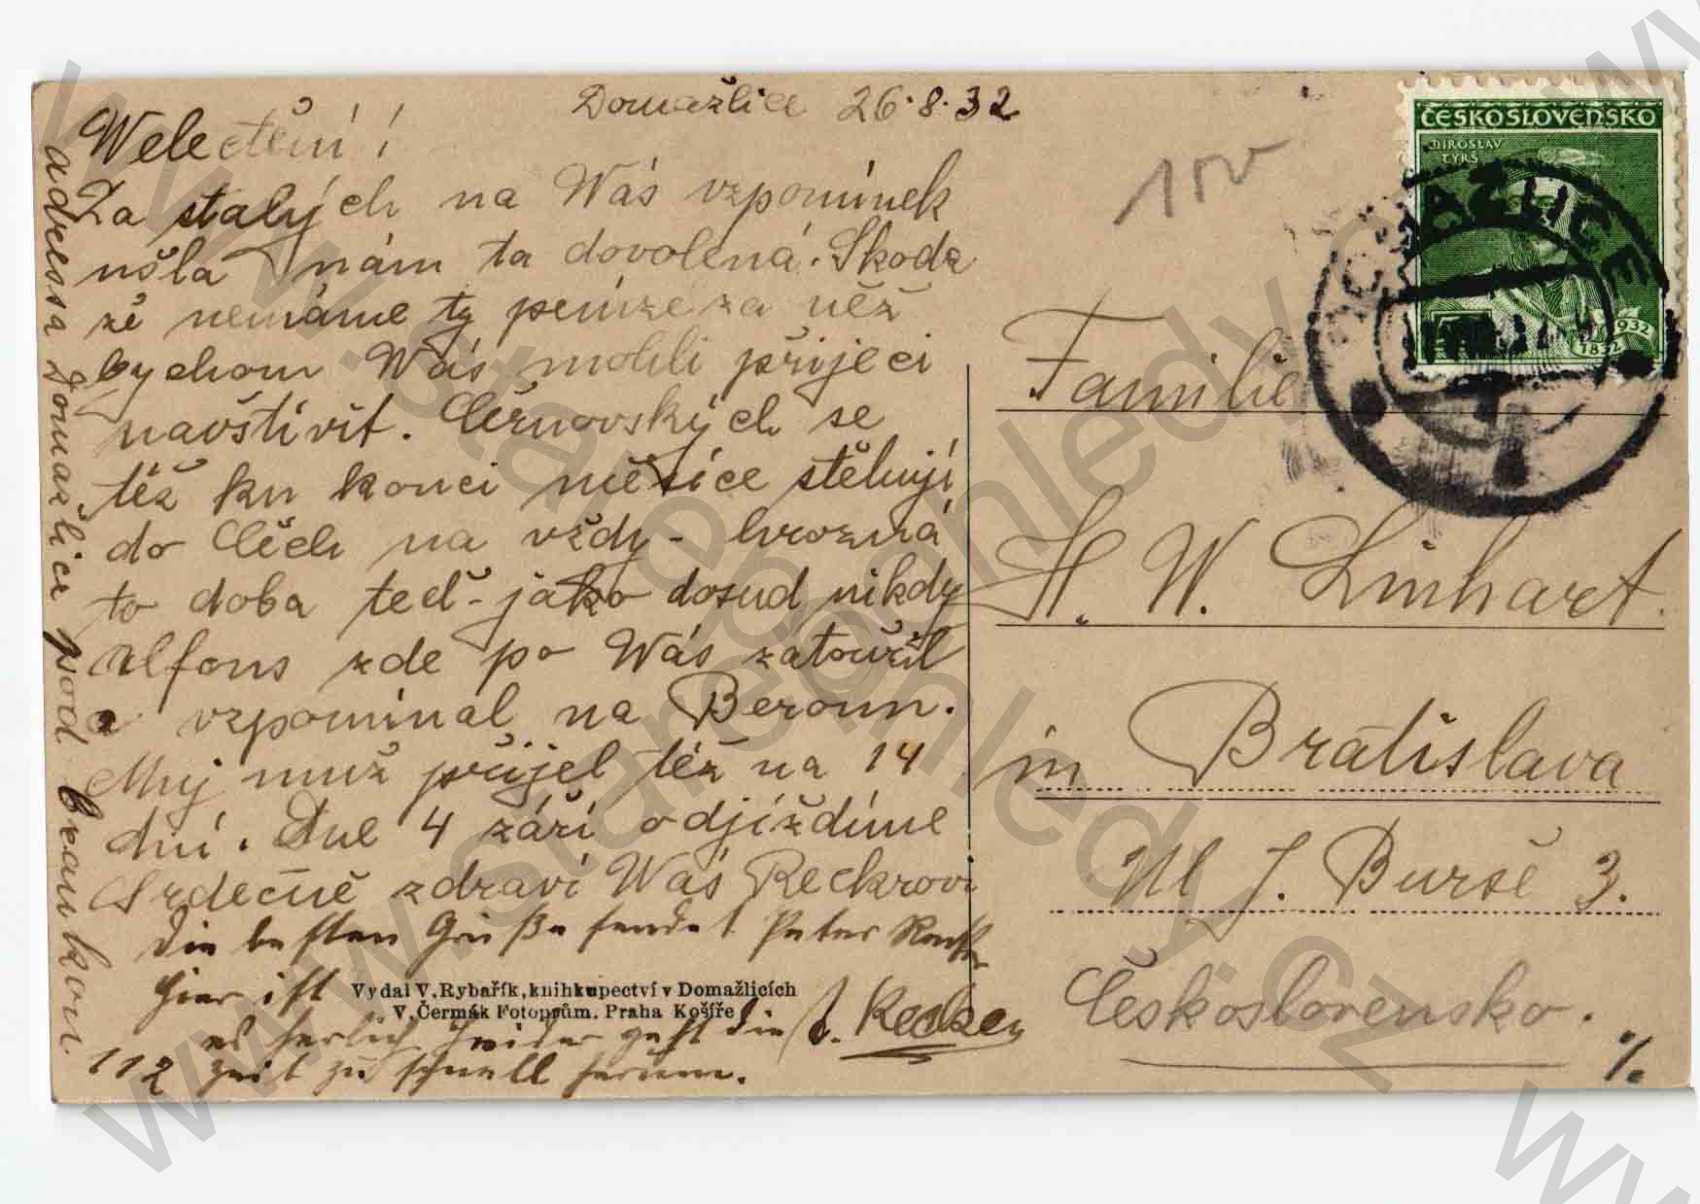 Domažlice 26.8.32
Weletěni!
Za stalých na Wás vzpomínek
ušla nám ta dovolená. Skoda
že nemáme ty peníze za něž
bychom Wás mohli přijeci
navštívit. Černovských se
též ku konci měsíce stěhují
do Čech na vždy - hrozná
to doba teď - jako dosud nikdy
Alfons zde po Wás zatoužil
a vzpomínal na Beroun.
Muj muž přijel též na 14
dní. Dne 4 září odjíždíme
Srdečně zdraví Wás Reckrovi
Die besten Grüße sendet Peter
Hier ist
es herlich leider geht die
Zeit zu schnell herum.
adressa Domažlice pod
112
Vydal V. Rybařík, knihkupectví v Domažlicích
V. Čermák Fotoprům. Praha Košíře
ČESKOSLOVENSKO
MIROSLAV
TYRŠ
1932
1832
DOMAŽLICE
Familie
H. W. Linhart.
in Bratislava
Ul J. Burse 3.
Československo.
%
www.starepohledy.cz
www.starepohledy.cz